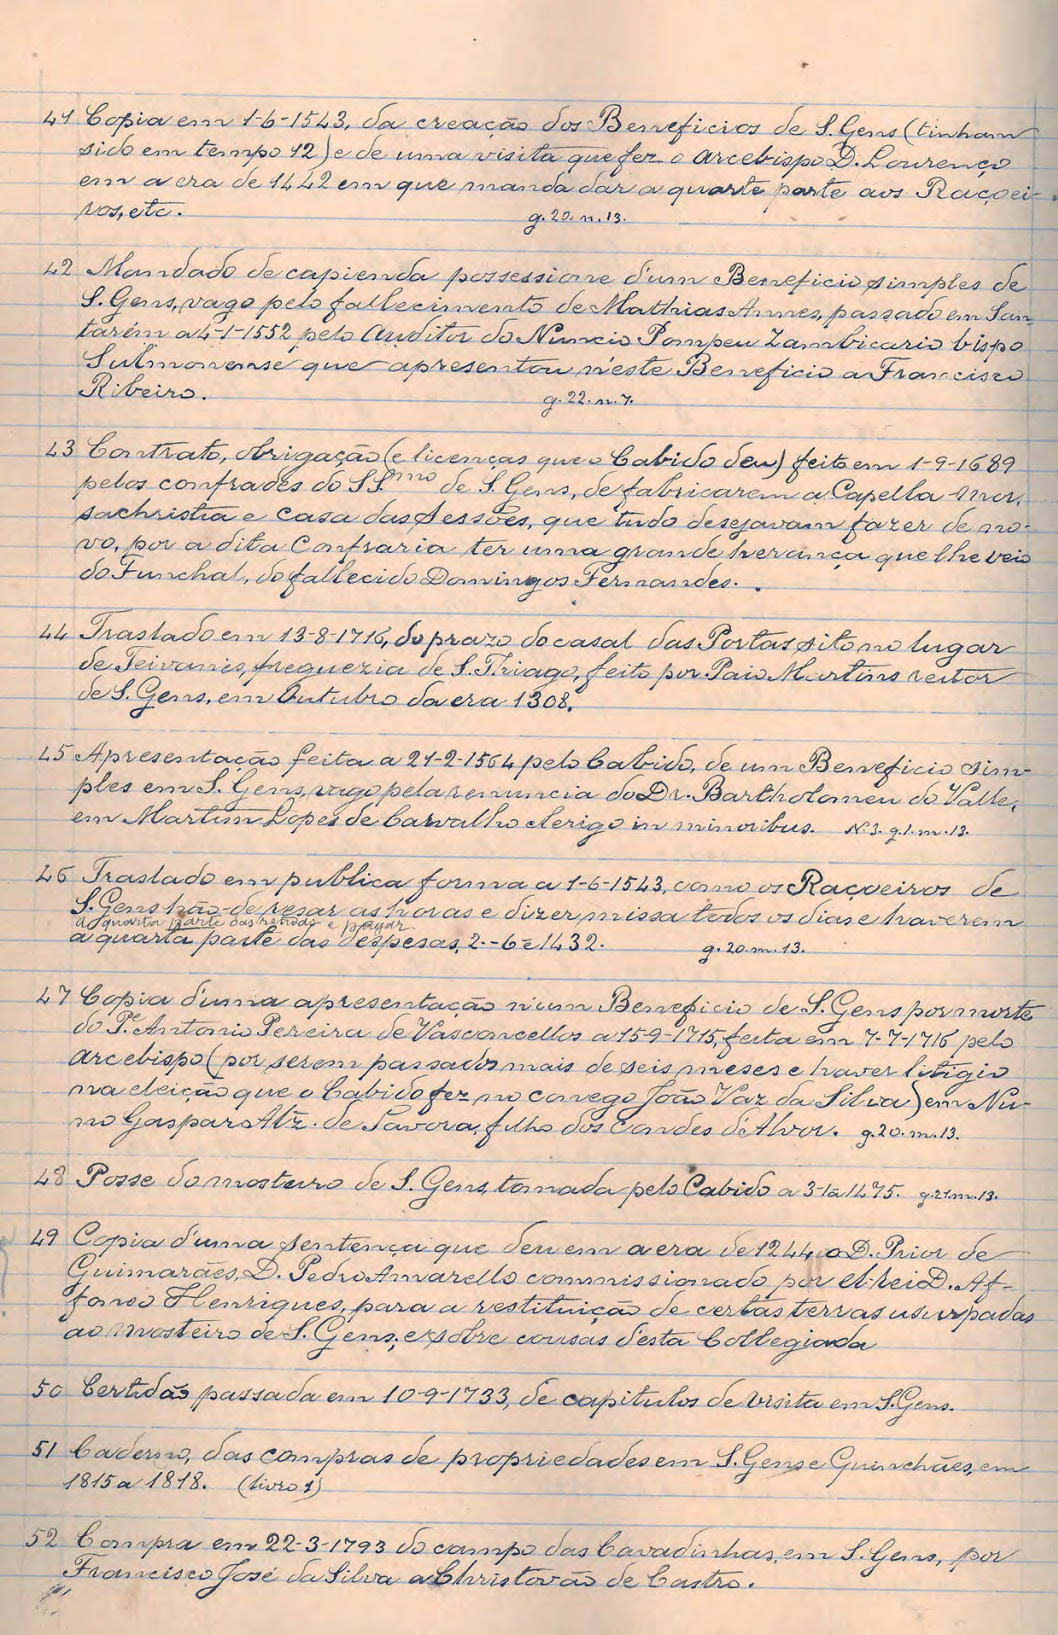 41 Copia em 1-6-1543, da creação dos Beneficios de S. Gens (tinham
sido em tempo 12) e de uma visita que fez o arcebispo D. Lourenço
em a era de 1442 em que manda dar a quarta parte aos Raçoei-
ros, etc. g. 20. m. 13.
42 Mandado de capienda possessione d'um Beneficio simples de
S. Gens, vago pelo fallecimento de Mathias Annes, passado em San-
tarém a 4-1-1552 pelo Auditor do Nuncio Pompeu Zambicario bispo
Sulmonense que apresentou n'este Beneficio a Francisco
Ribeiro. g. 22. m. 7.
43 Contrato, obrigação (e licenças que o Cabido deu) feito em 1-9-1689
pelos confrades do SS.mo de S. Gens, de fabricarem a Capella-mor,
sachristia e casa das Sessões, que tudo desejavam fazer de no-
vo, por a dita Confraria ter uma grande herança que lhe veio
do Funchal, do fallecido Domingos Fernandes.
44 Traslado em 13-8-1716, do prazo do casal das Portas sito no lugar
de Teivanis, freguezia de S. Thiago, feito por Paio Martins reitor
de S. Gens, em Outubro da era 1308.
45 Apresentação feita a 21-2-1564 pelo Cabido, de um Beneficio sim-
ples em S. Gens, vago pela renuncia do Dr. Bartholomeu do Valle,
em Martim Lopes de Carvalho clerigo in minoribus. N. 3. g. 1. m. 13.
46 Traslado em publica forma a 1-6-1543, como os Raçoeiros de
S. Gens hão-de resar as horas e dizer missa todos os dias e haverem
a quarta parte das rendas e pagar
a quarta parte das despesas, 2--6-1432. g. 20. m. 13.
47 Copia d'uma apresentação n'um Beneficio de S. Gens por morte
do Pe. Antonio Pereira de Vasconcellos a 15-9-1715, feita em 7-7-1716 pelo
arcebispo (por serem passados mais de seis meses e haver litigio
na eleição que o Cabido fez no conego João Vaz da Silva) em Nu-
no Gaspar Alz. de Tavora, filho dos Condes d'Alvor. g. 20. m. 13.
48 Posse do mosteiro de S. Gens, tomada pelo Cabido a 3-1-1475. g. 21. m. 13.
49 Copia d'uma sentença que deu em a era de 1244 o D. Prior de
Guimarães, D. Pedro Amarello commissionado por el-rei D. Af-
fonso Henriques, para a restituição de certas terras usurpadas
ao mosteiro de S. Gens, e sobre cousas d'esta Collegiada
50 Certidão passada em 10-9-1733, de capitulos de visita em S. Gens.
51 Caderno, das compras de propriedades em S. Gens e Guinchães, em
1815 a 1818. (livro 1)
52 Compra em 22-3-1793 do campo das Cavadinhas, em S. Gens, por
Francisco José da Silva a Christovão de Castro.